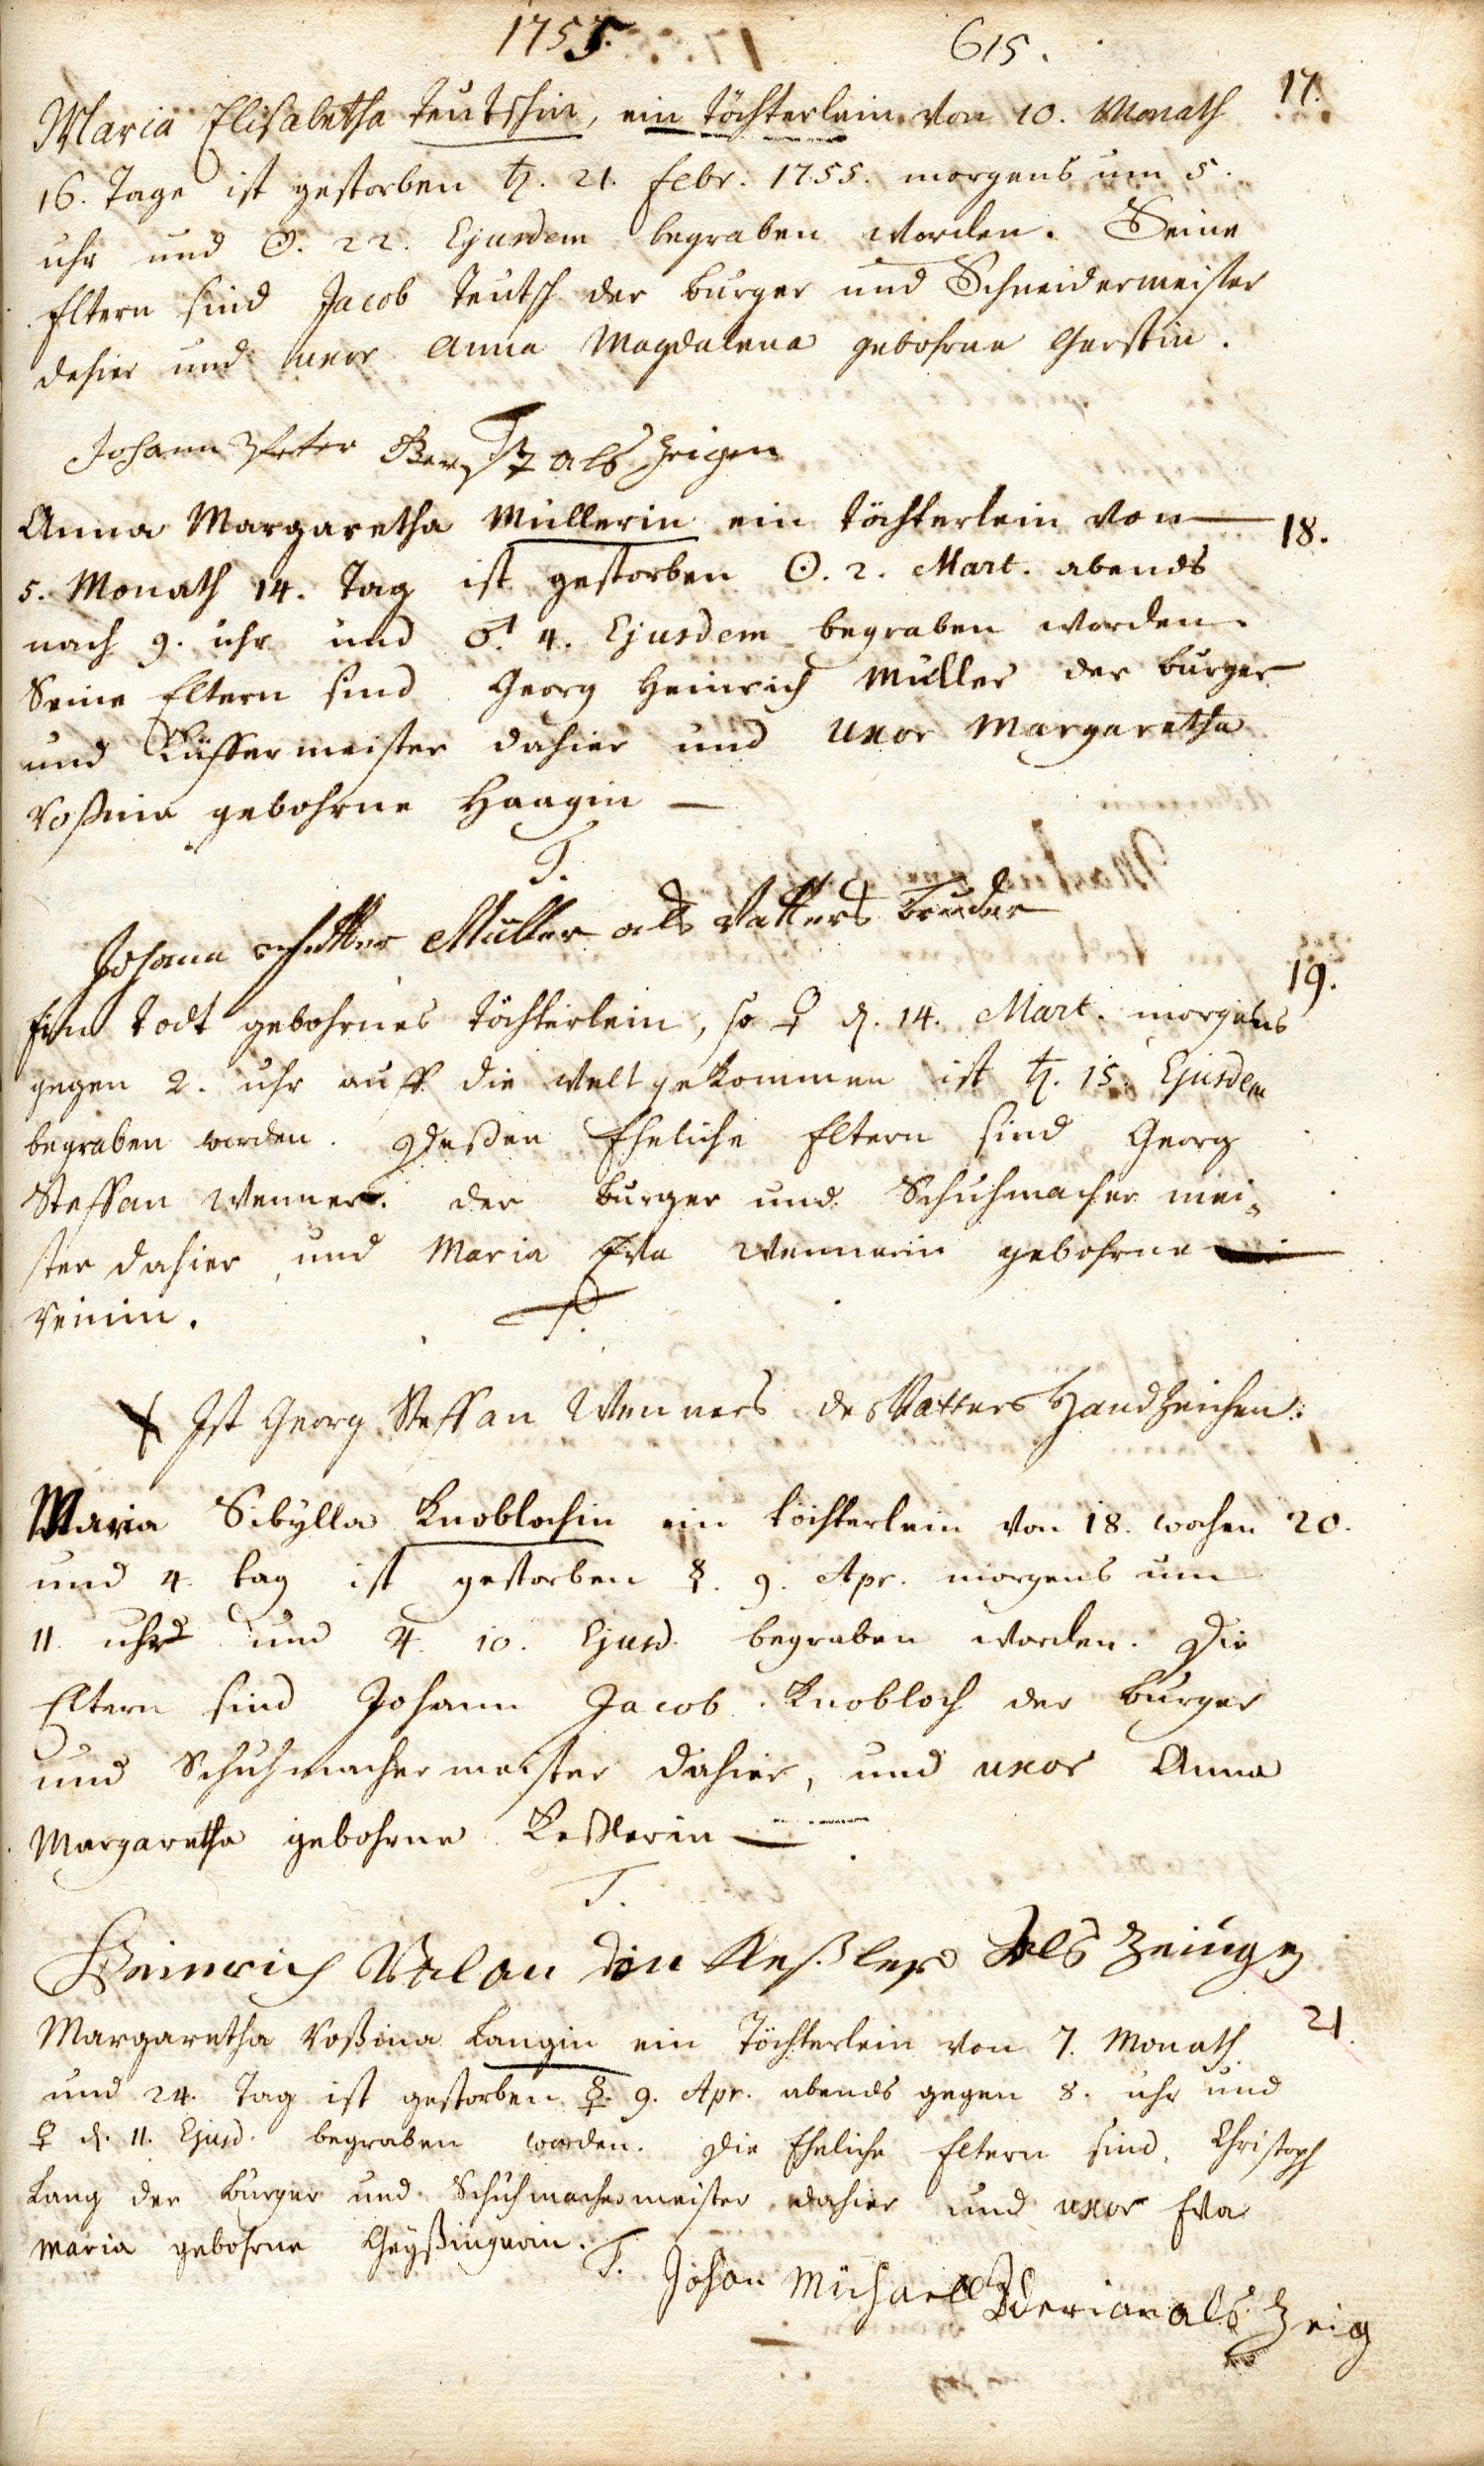 1755.
615.
Maria Elisabetha Teutschin, ein Töchterlein von 10. Monath 17.
16. Tage ist gestorben ♄. 21. Febr. 1755. morgens um 5.
uhr und ☉. 22. Ejusdem begraben worden. Seine
Eltern sind Jacob Teutsch der burger und Schneidermeister
dahier und uxor Anna Magdalena gebohrne Gerstin.
Johann Peter als Zeigen
Anna Margaretha Müllerin ein Töchterlein von 18.
5. Monath 14. Tag ist gestorben ☉. 2. Mart. abends
nach 9. uhr und ♂. 4. Ejusdem begraben worden.
Seine Eltern sind Georg Heinrich Müller der burger
und Küffermeister dahier und uxor Margaretha
Roßina gebohrne Haagin
T.
Johann Müller als Vatters bruder
19.
Ein todt gebohrnes Töchterlein, so ♀ d. 14. Mart. morgens
gegen 2. uhr auff die Welt gekommen ist ♄. 15. Ejusdem
begraben worden. Deßen Eheliche Eltern sind Georg
Steffan Wenner. der burger und Schuhmacher mei-
ster dahier, und Maria Eva Wennerin gebohrne
T.
Ist Georg Steffan Wenners des Vatters Handzeichen.
Maria Sibylla Knoblochin ein töchterlein von 18. wochen 20.
und 4. tag ist gestorben ☿. 9. Apr. morgens um
11. uhr und ♃ 10. Ejusd. begraben worden. Die
Eltern sind Johann Jacob Knobloch der burger
und Schuhmachermeister dahier, und uxor Anna
Margaretha gebohrne Keßlerin
T.
Heinrich Valandin Keßler Als Zeuge
Margaretha Roßina Langin ein Töchterlein von 7. Monath 21.
und 24. Tag ist gestorben ☿. 9. Apr. abends gegen 8. uhr und
♀ d. 11. Ejusd. begraben worden. Die Eheliche Eltern sind, Christoph
Lang der burger und Schuhmachermeister dahier und uxor Eva
Maria gebohrne
T. Johan Michael als Zeig